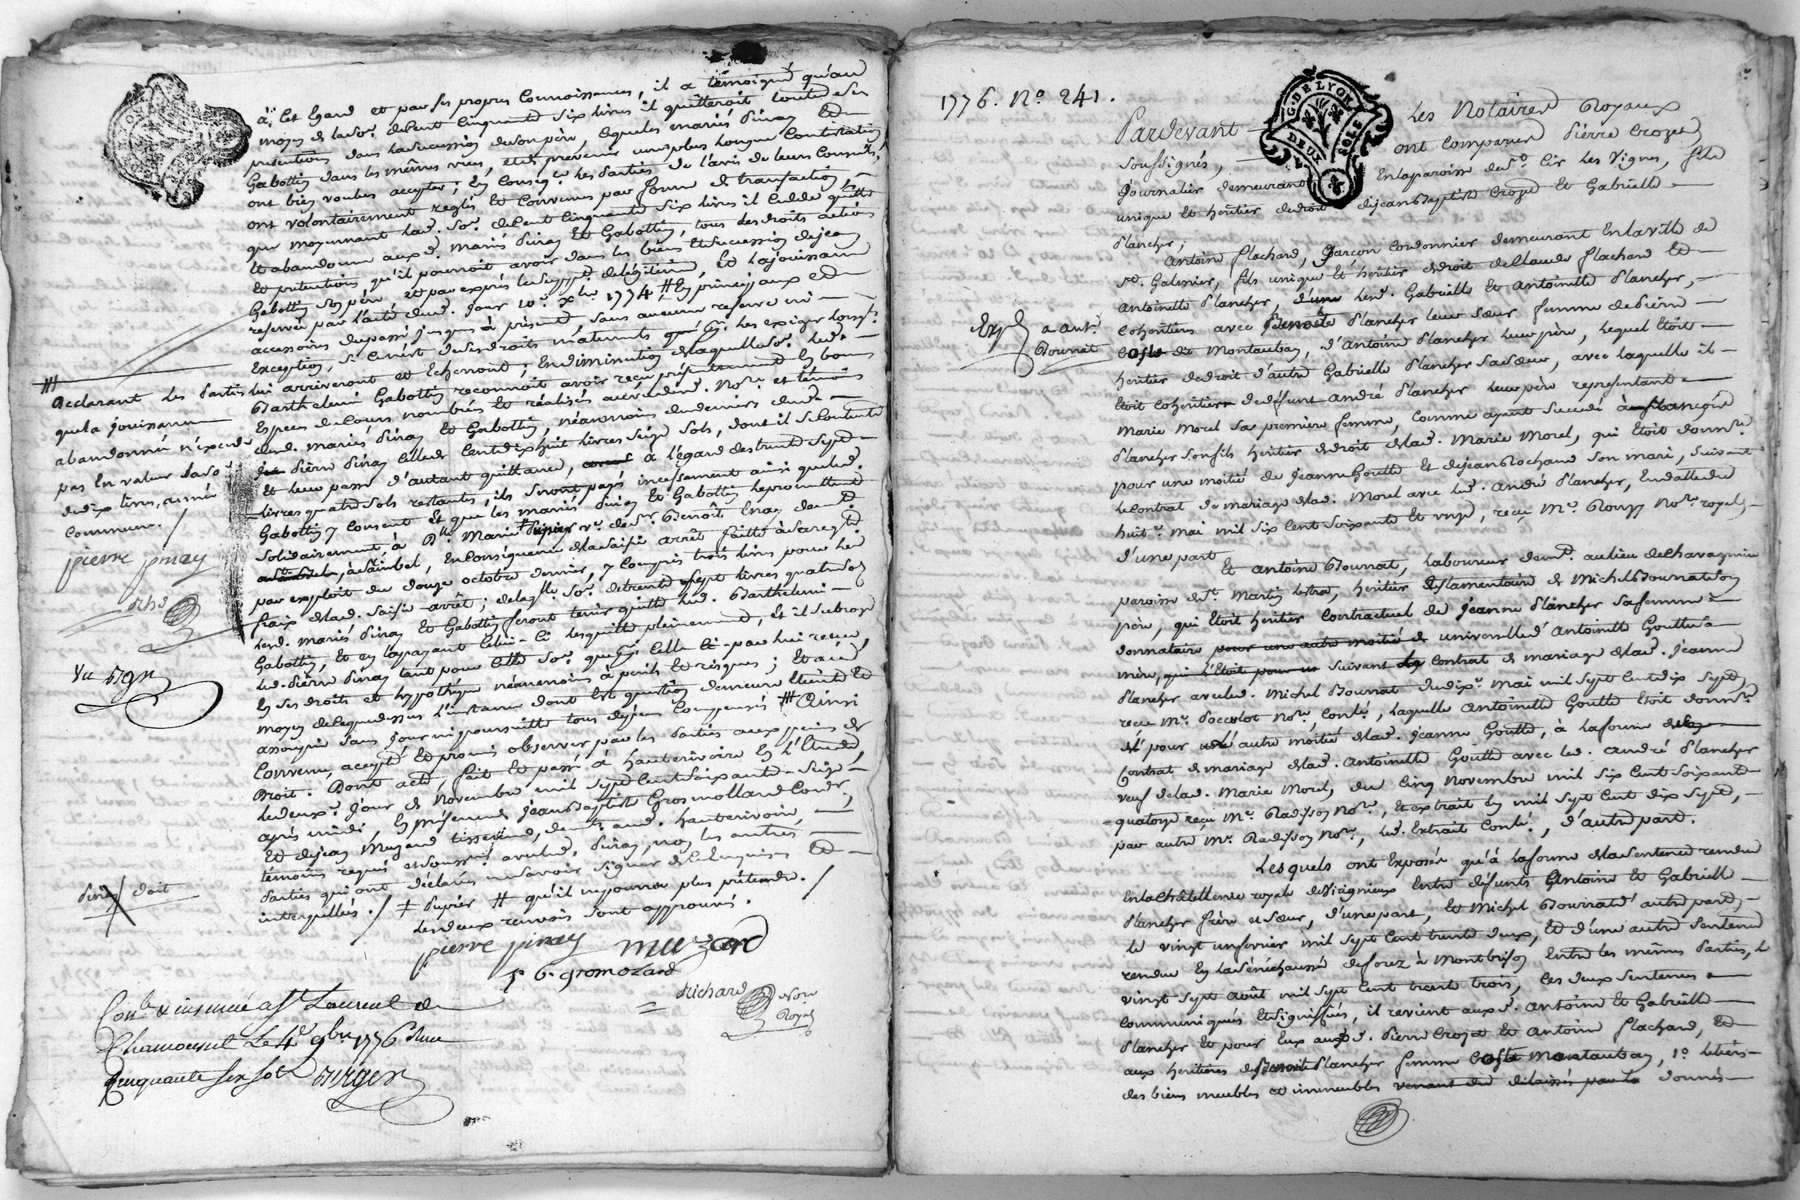 à cet Egard et par ses propres Connoissances, il a témoigné qu'au
moyen de lad. so. de Cent Cinquante six livres il quitteroit toutes ses
prétentions dans la Succession de son père, lesquels mariés Pinay et
Gabottin dans les mêmes vües, et de prévenir une plus longue Contestation
ont bien voulu accepter; En Conseq.ce les Parties de l'avis de leurs Conseils,
ont volontairement reglés et Convenus par forme de transaction,
que moyennant lad. so. de Cent Cinquante six livres il cedde quitte
Et abandonne aux d. mariés Pinay Et Gabottin, tous les droits actions
Et prétentions qu'il pourroit avoir dans les biens Et Succession de jean
Gabottin son père et par exprès le Supp.t de légitime, Et la jouissance
reservée par l'acte dud. jour 10e xbre 1774 # En principaux et
accessoires du passé jusques à présent, sans aucune reserve ni
Exception, si ce n'est de ses droits maternels les exiger lorsqu'ils
lui arriveront et Echerront; En diminution de laquelle so. led.
Barthelemi Gabottin reconnoit avoir reçu présentement En bonnes
Espèces de Cours nombrés et réalisés au vû dud. No.re et témoins
desd. mariés Pinay Et Gabottin, néanmoins des deniers dud.
Pierre Pinay Celle de Cent dix huit livres seize sols, dont il se Contente
Et leur passe d'autant quittance, à l'égard des trente sept
livres quatre sols restants, ils seront payés incessamment ainsi que led.
Gabottin y Consent Et que les mariés Pinay Et Gabottin le promettent
solidairement à D.lle Marie ‡ v.e de S.r Benoît Enay dem.t
à Sainbel, En Conséquence de la Saisie arrêt faitte à sa req.te
par exploit du douze octobre dernier, y Compris trois livres pour les
fraix de lad. saisie-arrêt; de laq.lle so. de trente sept livres quatre sols
lesd. mariés Pinay Et Gabottin feront tenir quitte led. Barthelemi
Gabottin, Et en la payant Celui-ci les quitte pleinement, et il subroge
led. Pierre Pinay tant pour cette so. que pour Celle Ci-par lui reçue,
En ses droits et hypothèque néanmoins à périls et risques; Et au
moyen de ce que dessus l'instance dont Est question demeure Eteinte Et
assoupie sans jour ni poursuitte tous dépens Compensés # Ainsi
Convenu, accepté Et promis observer par les Parties aux peines de
Droit. Dont acte, fait Et passé à hauterivoire En l'Etude,
Le deux.e jour de Novembre mil sept Cent Soixante-Seize
après midi, En présence de jean Baptiste Grosmolland Cord.r
Et de jean Muzard tisserand, dem.ts aud. hauterivoire,
témoins requis et soussig.s avec led. Pinay, non les autres
Parties qui ont déclarés ne savoir signer de ce Enquises Et
interpellées. / ‡ Dupier # qu'il ne pourra plus prétendre. /
Les deux renvois sont approuvés.
pierre pinay muzard
J. b. gromolard
Richard No.re Royal
# Declarant les Parties
que la jouissance
abandonnée n'excede
pas En valeur la so.
de dix livres, année
Commune. /
pierre pinay
Richd
Vu Bgr
Pinay doit
Con.lé & insinué a St Laurent de
Chamousset Le 4e 9bre 1776 Reçu
Cinquante six sols Berger
1776. No. 241.
G. DE LYON
DEUX SOLS
Pardevant Les Notaires Royaux
soussignés, ont Comparus Pierre Crozet
journalier demeurant En la paroisse de St. Cir les Vignes, fils
unique Et héritier de droit de jean Baptiste Crozet Et Gabrielle
Plancher;
Antoine Flachard, Garçon Cordonnier demeurant En la ville de
St. Galmier, fils unique Et héritier de droit de Claude Flachard Et
Antoinette Plancher, lesd. Gabrielle Et Antoinette Plancher,
Cohéritiers avec Benoite Plancher leur sœur femme de Pierre
Coste dit Montauban, d'Antoine Plancher leur père, lequel Etoit
héritier de droit d'autre Gabrielle Plancher sa sœur, avec laquelle il
Etoit Cohéritier de défunt andré Plancher leur père représentant
Marie Morel sa première femme, Comme ayant succédé à
Plancher son fils héritier de droit de lad. Marie Morel, qui Etoit donn.re
pour une moitié de jeanne Goutte Et de jean Rochand son mari, suivant
le Contrat de mariage de lad. Morel avec led. andré Plancher, En datte du
huit.e mai mil six Cent Soixante Et onze, reçu M.e Rouzy No.re royal,
d'une part
Et antoine Bournat, laboureur dem.t au lieu de Chavagnieu
paroisse de St. Martin lestra, héritier testamentaire de Michel Bournat son
père, qui Etoit héritier Contractuel de jeanne Plancher sa femme
donnataire universelle d'Antoinette Goutte sa
mère, suivant Contrat de mariage de lad. jeanne
Plancher avec led. Michel Bournat du dix.e mai mil sept Cent dix sept
reçu M.e Poccolot No.re, Conlé, laquelle antoinette Goutte Etoit donn.re
pour autre moitié de lad. jeanne Goutte, à la forme de
Contrat de mariage de lad. antoinette Goutte avec led. andré Plancher
veuf de lad. Marie Morel, du Cinq Novembre mil six Cent Soixante
quatorze reçu M.e Radisson No.re, Et extrait En mil sept Cent dix sept,
par autre M.e Radisson No.re, led. Extrait Conlé, d'autre part.
Lesquels ont Exposés qu'à la forme de la Sentence rendue
En la Châtellenie royale de Virignieux Entre défunts Antoine Et Gabrielle
Plancher frère et sœur, d'une part, Et Michel Bournat d'autre part,
le vingt un février mil sept Cent trente deux, Et d'une autre Sentence
rendue En la Sénéchaussée de forez à Montbrison Entre les mêmes Parties, le
vingt sept août mil sept Cent trente trois, Ces deux Sentences
Communiqués Et signifiés, il revient aux d. antoine Et Gabrielle
Plancher Et pour Eux aux d. Pierre Crozet Et Antoine Flachard, Et
aux héritiers de Benoite Plancher femme Coste Montauban, 1o. le tiers
des biens meubles et immeubles donnés
Exp.é a ant.e
Bournat